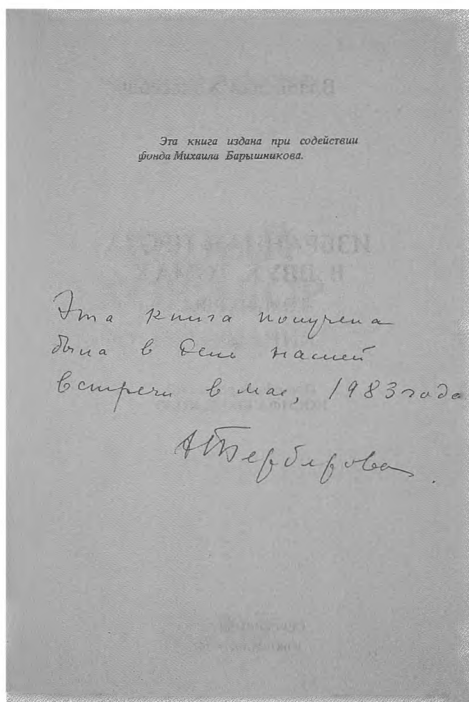 Эта книга издана при содействии
фонда Михаила Барышникова.
ИЗБРАННАЯ ПРОЗА
В ДВУХ ТОМАХ
Эта книга получена
была в день нашей
встречи в мае, 1983 года
Берберова